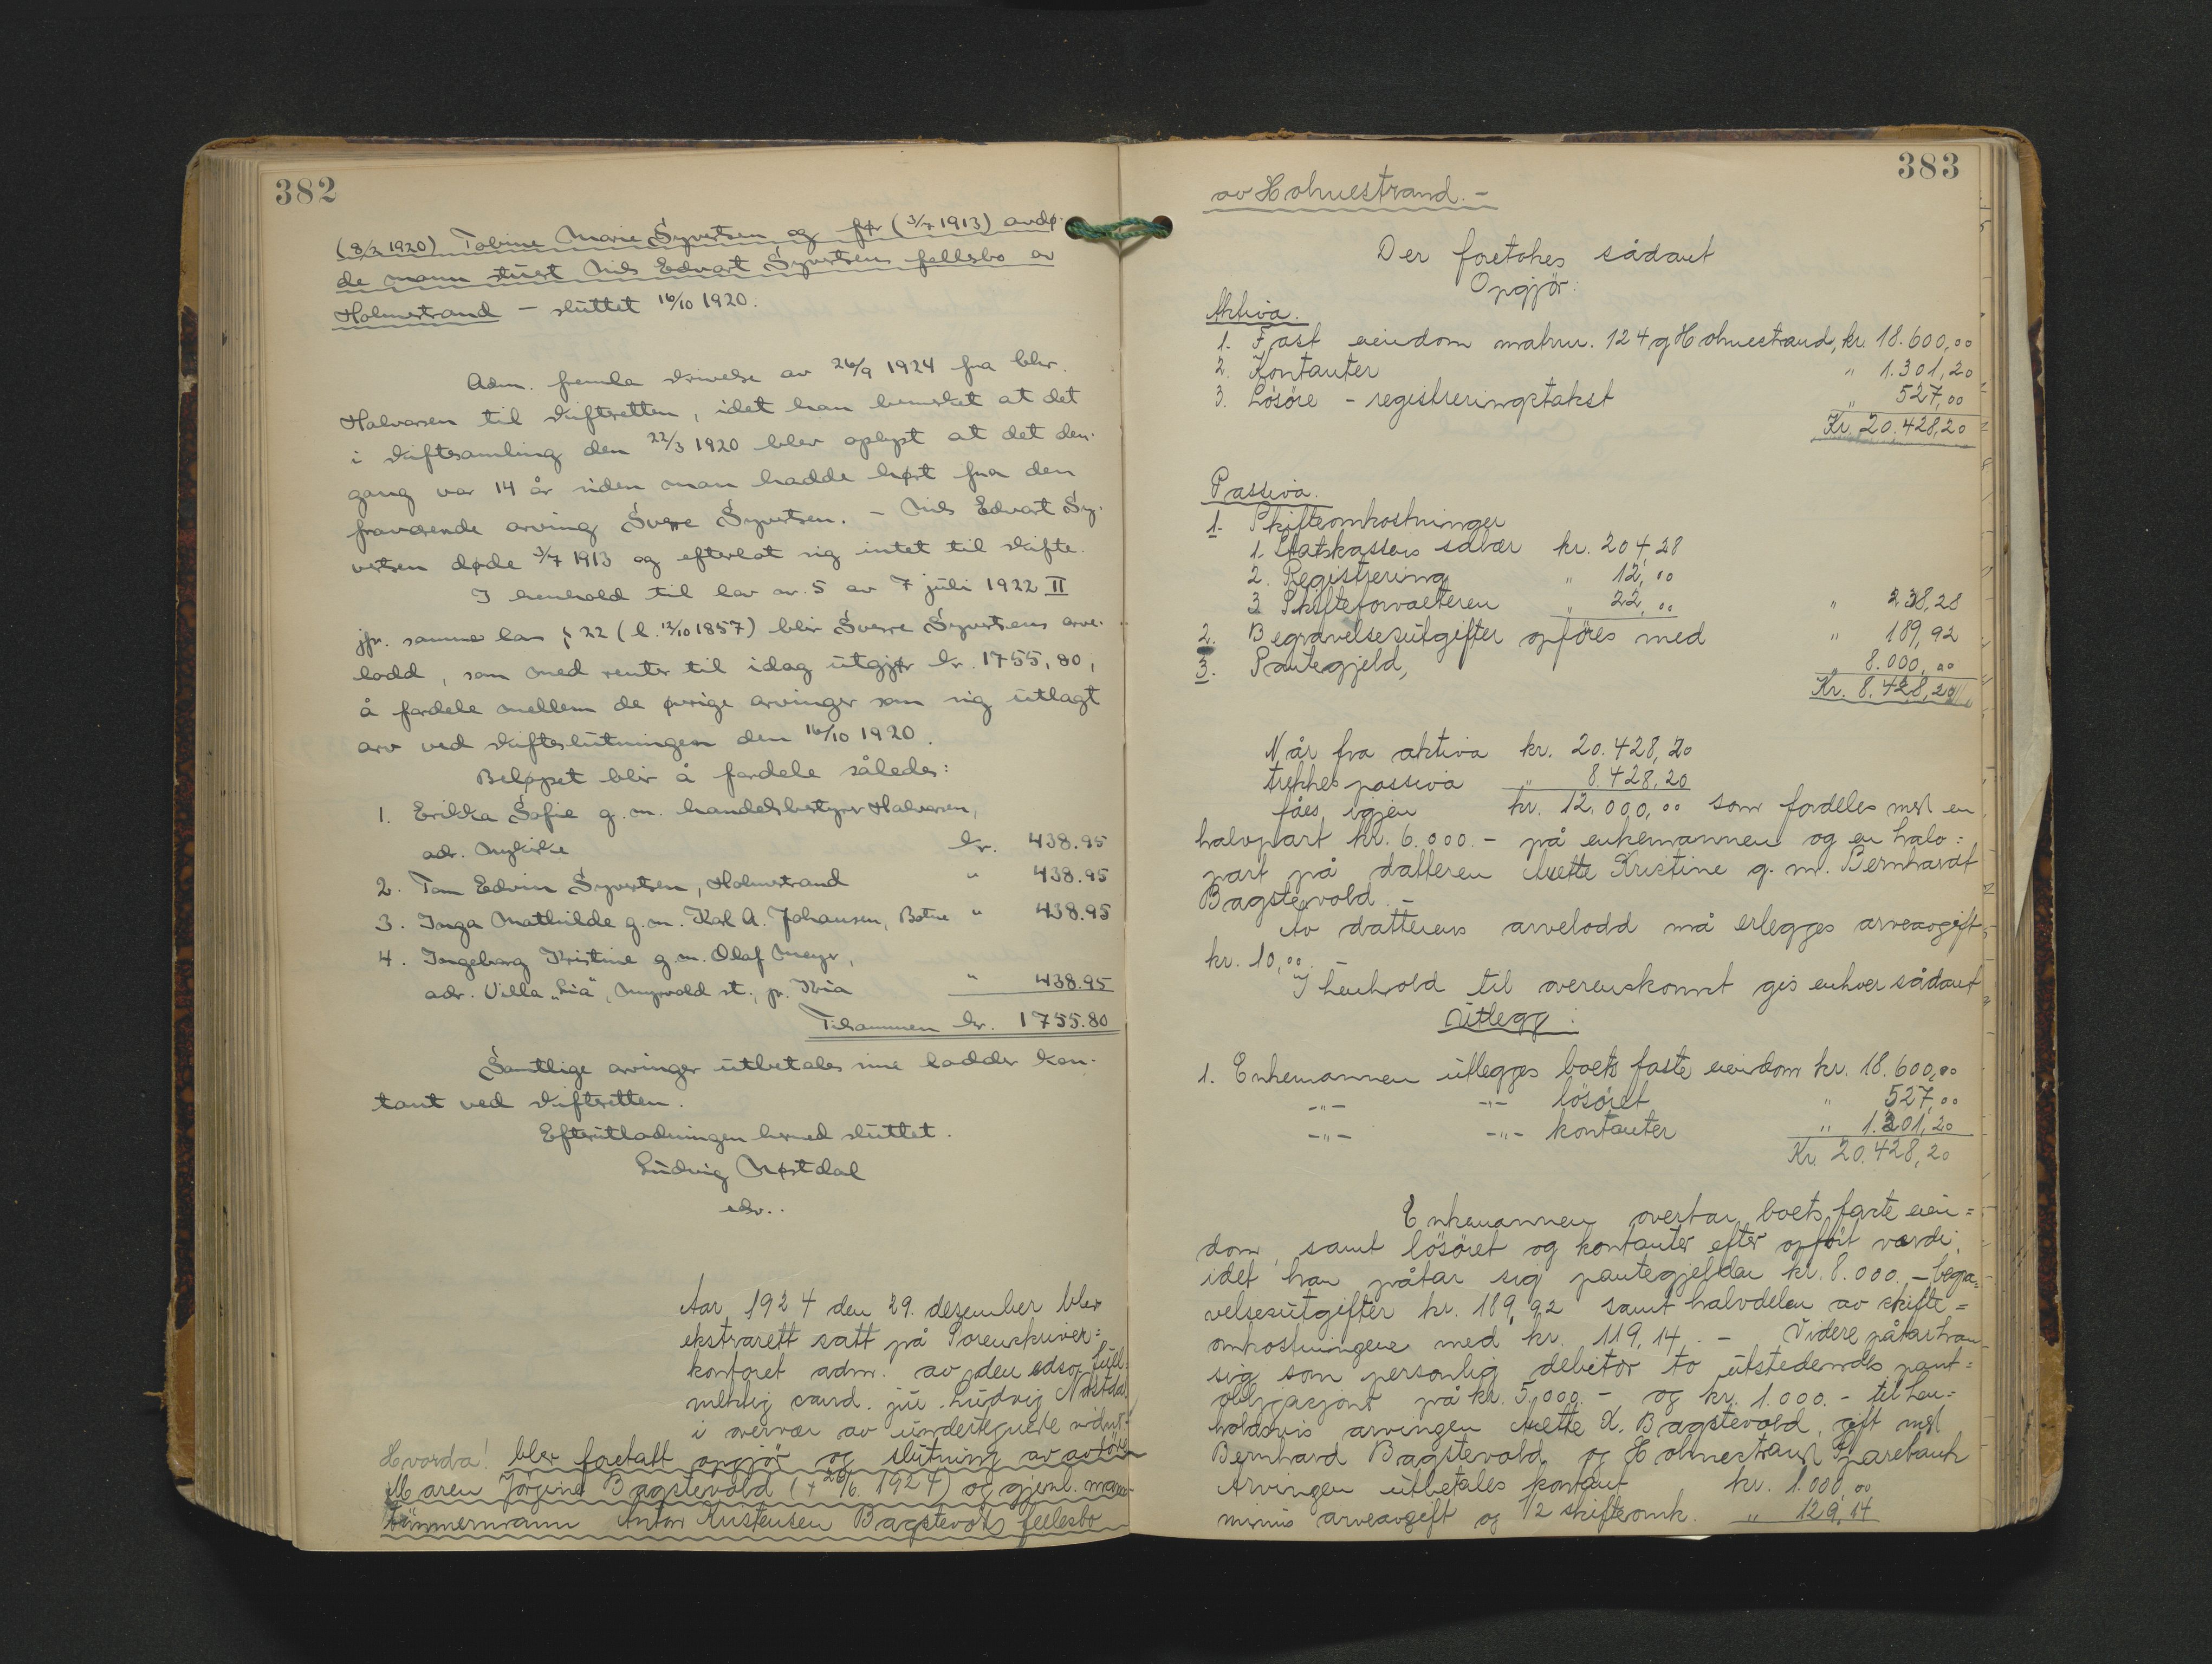 382
(8/2 1920) Tobine Marie Syvertsen og før (3/7 1913) avdø-
de mann stuert Nils Edvart Syvertsens fellesbo av
Holmestrand - sluttet 16/10 1920.
Adm. fremla skrivelse av 26/9 1924 fra hr.
Halvorsen til skifteretten, idet han bemerket at det
i skiftesamling den 22/3 1920 blev oplyst at det den-
gang var 14 år siden man hadde hørt fra den
fraværende arving Sverre Syvertsen. - Nils Edvart Sy-
vertsen døde 3/7 1913 og efterlot sig intet til skifte.
I henhold til lov nr. 5 av 7 juli 1922 II
jfr. samme lov § 22 (l. 12/10 1857) blir Sverre Syvertsens arve-
lodd, som med renter til idag utgjør kr. 1755,80,
å fordele mellem de øvrige arvinger som sig utlagt
arv ved skifteslutningen den 16/10 1920.
Beløpet blir å fordele således:
1. Erikka Sofie g. m. handelsbestyrer Halvorsen,
adr. Nykirke kr. 438.95
2. Tom Edvin Syvertsen, Holmestrand " 438.95
3. Inga Mathilde g. m. Karl A. Johansen, Botne " 438.95
4. Ingeborg Kristine g. m. Olaf Meyer,
adr. Villa "Lia", Myrvold st., pr. Kria " 438.95
Tilsammen kr. 1755.80
Samtlige arvinger utbetales sine lodder kon-
tant ved skifteretten.
Efterutlodningen hermed sluttet.
Ludvig Nøstdal
edsv..
Aar 1924 den 29. desember blev
ekstrarett satt på Sorenskriver=
kontoret adm. av den edsv. full=
mektig cand. jur. Ludvig Nøstdal
i overvær av undertegnede vidner
Hvorda! blev foretatt opgjör og slutning av avdöde
Maren Jörgine Bagstevold (+ 26/6. 1924) og gjenl. mann
tömmermann Anton Kristensen Bagstevolds fellesbo
383
av Holmestrand. -
Der foretokes sådant
Opgjör:
Aktiva.
1. Fast eiendom matrnr. 124 g Holmestrand, kr. 18.600,00
2. Kontanter " 1.301,20
3. Lösöre - registreringstakst " 527,00
Kr. 20.428,20
Passiva.
1. Skifteomkostninger
1. Statskassens salær kr. 204,28
2. Registrering " 12,00
3. Skifteforvalteren " 22,00 " 238,28
2. Begravelsesutgifter opföres med " 189,92
3. Pantegjeld, " 8.000,00
Kr. 8.428,20
Når fra aktiva kr. 20.428,20
trekkes passiva " 8.428,20
fåes igjen kr. 12.000,00 som fordeles med en
halvpart kr. 6.000.- på enkemannen og en halv=
part på datteren Anette Kristine g. m. Bernhardt
Bagstevold. -
Av datterens arvelodd må erlegges arveavgift
kr. 10,00.
I henhold til overenskomst gis enhver sådant
Utlegg:
1. Enkemannen utlegges boets faste eiendom kr. 18.600,00
-"- -"- lösöret " 527,00
-"- -"- kontanter " 1.301,20
Kr. 20.428,20
Enkemannen overtar boets faste eien=
dom, samt lösöret og kontanter efter opfört verdi,
idet han påtar sig pantegjelden kr. 8.000.- begra=
velsesutgifter kr. 189,92 samt halvdelen av skifte=
omkostningene med kr. 119,14. - Videre påtar han
sig som personlig debitor to utstedendes pant=
obligasjoner på kr. 5,000.- og kr. 1.000.- til hen=
holdsvis arvingen Anette K. Bagstevold, gift med
Bernhard Bagstevold og Holmestrand Sparebank
Arvingen utbetales kontant kr. 1.000,00
minus arveavgift og 1/2 skifteomk. " 129,14